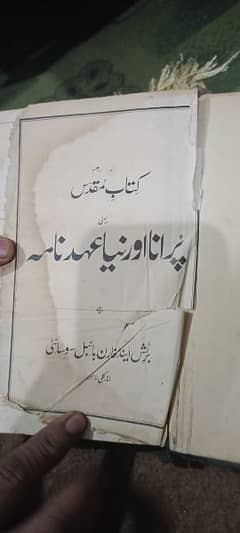 کتاب مقدس
یعنی
پرانا اور نیا عہد نامہ
برٹش اینڈ فارن بائبل سوسائٹی
انارکلی